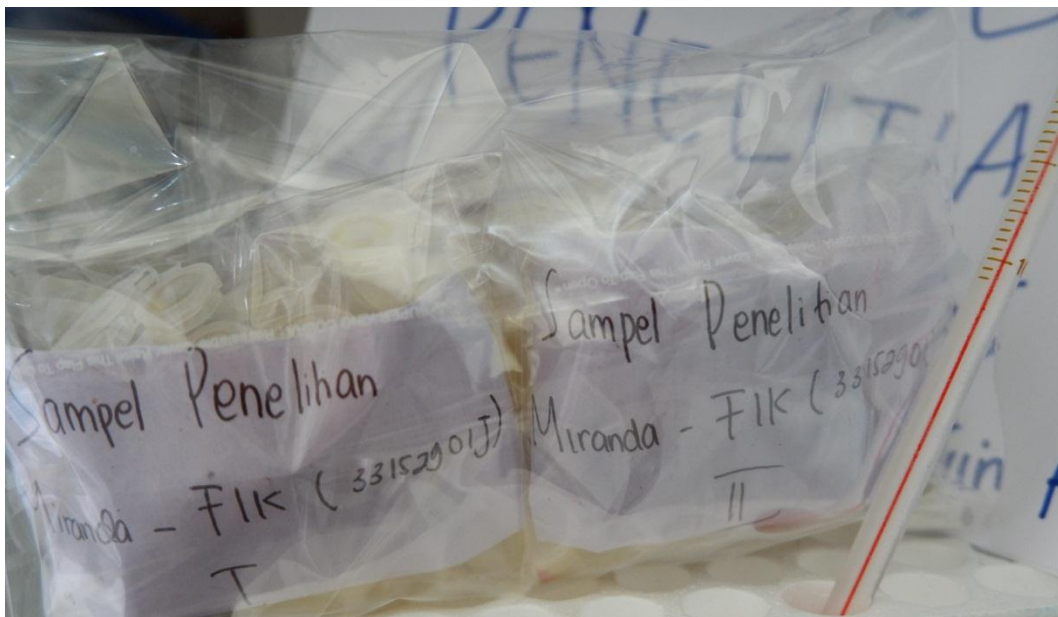 PENELITIA
Sampel Penelitian
Miranda - FIK (3315290
II
Sampel Penelitian
Miranda - FIK (33152901J)
I